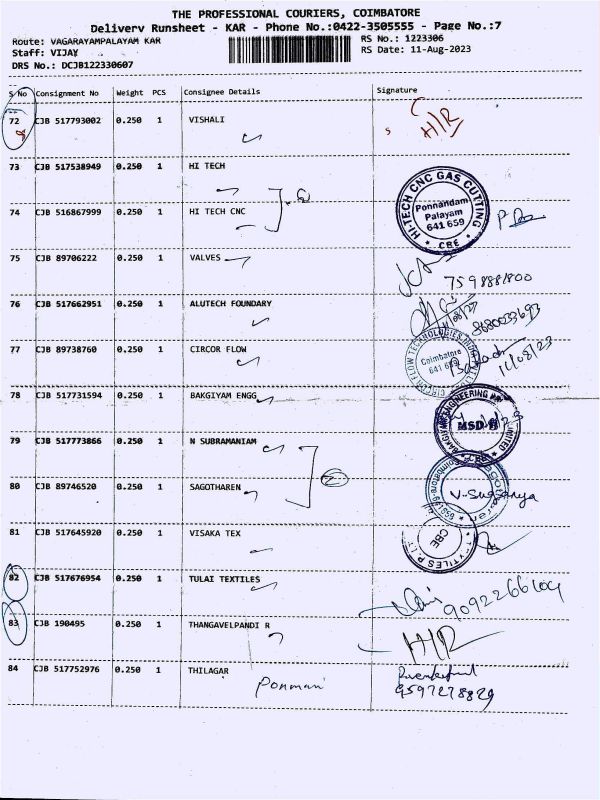 THE PROFESSIONAL COURIERS, COIMBATORE
Delivery Runsheet - KAR - Phone No.:0422-3505555 - Page No.:7
Route: VAGARAYAMPALAYAM KAR
RS No.: 1223306
Staff: VIJAY
RS Date: 11-Aug-2023
DRS No.: DCJB122330607
S No Consignment No Weight PCS Consignee Details Signature
72 CJB 517793002 0.250 1 VISHALI H/R
73 CJB 517538949 0.250 1 HI TECH
HI-TECH CNC GAS CUTTING
Ponnandam
Palayam
641 659
CBE
74 CJB 516867999 0.250 1 HI TECH CNC
75 CJB 89706222 0.250 1 VALVES
7598881800
76 CJB 517662951 0.250 1 ALUTECH FOUNDARY
8680033693
77 CJB 89738760 0.250 1 CIRCOR FLOW
Coimbatore
641 659
11/08/23
78 CJB 517731594 0.250 1 BAKGIYAM ENGG
79 CJB 517773866 0.250 1 N SUBRAMANIAM
80 CJB 89746520 0.250 1 SAGOTHAREN
V-Suganya
81 CJB 517645920 0.250 1 VISAKA TEX
CBE
82 CJB 517676954 0.250 1 TULAI TEXTILES
83 CJB 190495 0.250 1 THANGAVELPANDI R H/R
84 CJB 517752976 0.250 1 THILAGAR
Ponmani
9597278829